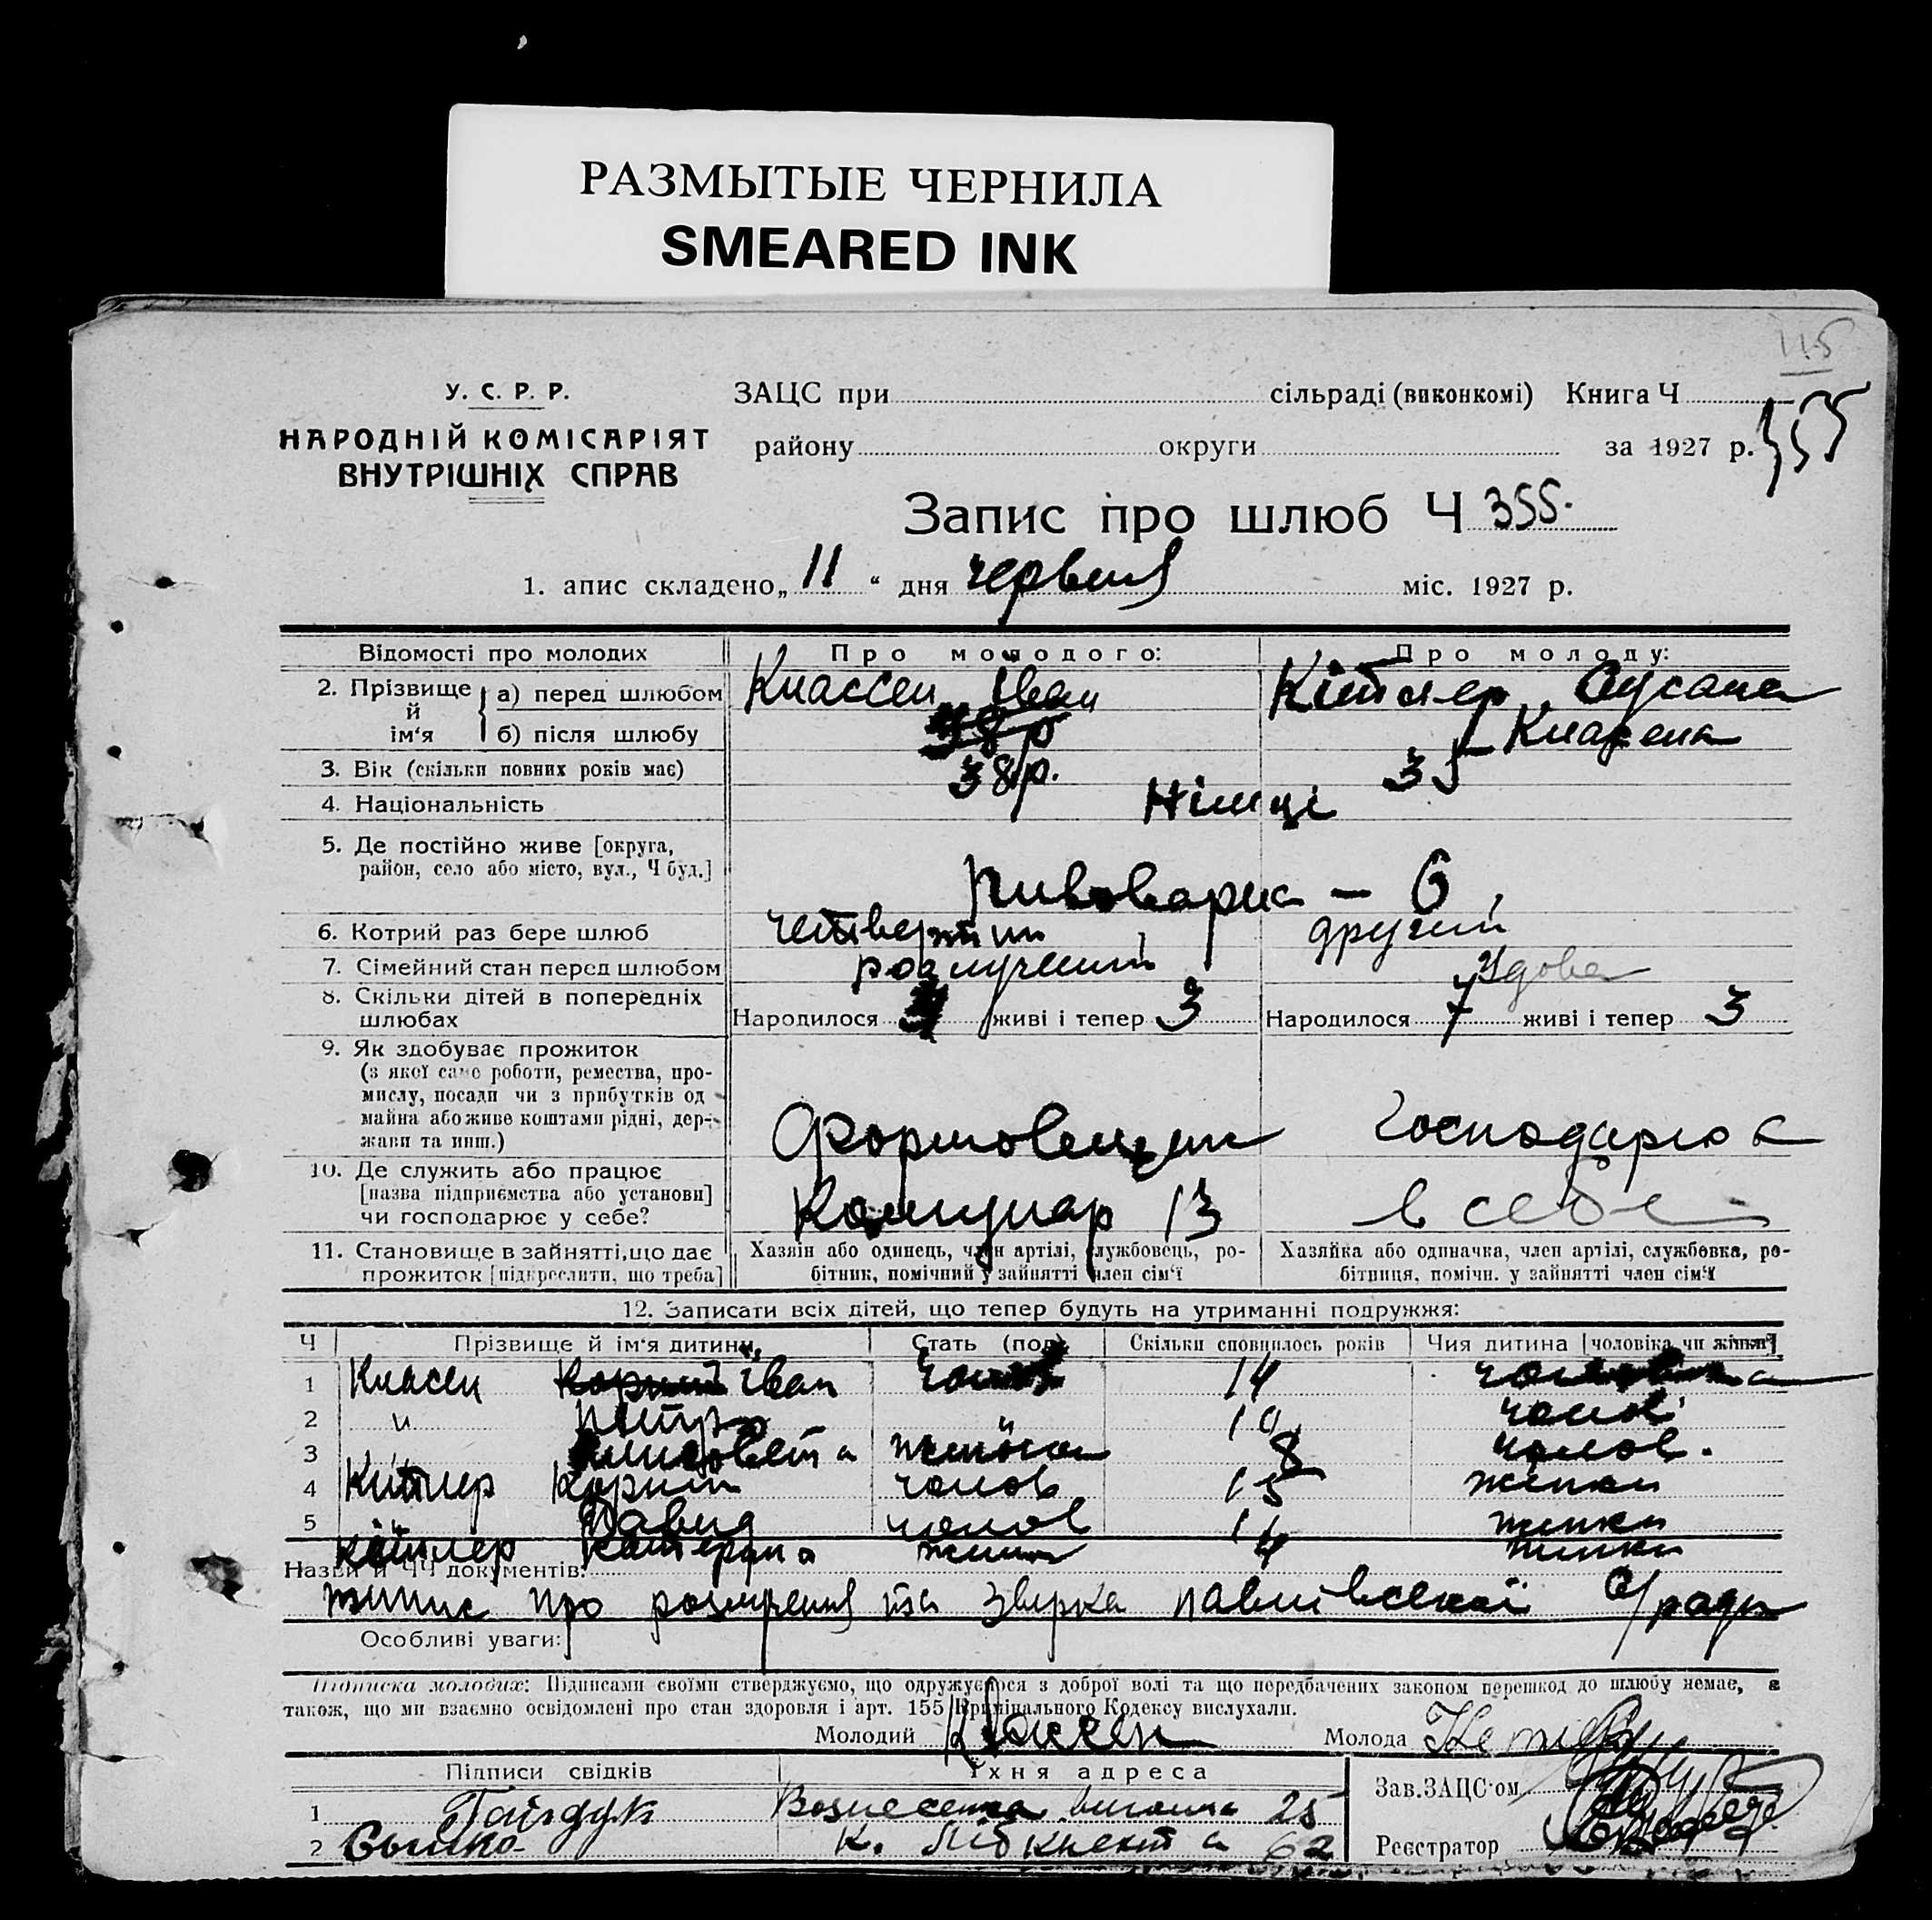 РАЗМЫТЫЕ ЧЕРНИЛА
SMEARED INK
115
У. С. Р. Р.
НАРОДНІЙ КОМІСАРІЯТ
ВНУТРІШНІХ СПРАВ
ЗАЦС при сільраді (виконкомі) Книга Ч
району округи за 1927 р.
355
Запис про шлюб Ч 355.
1. апис складено „ 11 “ дня червня міс. 1927 р.
Відомості про молодих Про молодого: Про молоду:
2. Прізвище й ім'я а) перед шлюбом Классен Іван Кітлер Сусана
б) після шлюбу 38 р Класена
3. Вік (скільки повних років має) 38 р. 35
4. Національність Німці
5. Де постійно живе [округа,
район, село або місто, вул., Ч буд.] Пивоварна – 6
6. Котрий раз бере шлюб четвертий другий
7. Сімейний стан перед шлюбом розлучений Удова
8. Скільки дітей в попередніх
шлюбах Народилося живі і тепер 3 Народилося 7 живі і тепер 3
9. Як здобуває прожиток
(з якої саме роботи, ремества, про-
мислу, посади чи з прибутків од
майна або живе коштами рідні, дер-
жави та инш.) Формовещик господарює
10. Де служить або працює
[назва підприємства або установи]
чи господарює у себе? Комунар 13 в себе
11. Становище в зайнятті, що дає
прожиток [підкреслити, що треба]
Хазяїн або одинець, член артілі, службовець, ро-
бітник, помічний у зайнятті член сім'ї
Хазяйка або одиначка, член артілі, службовка, ро-
бітниця, помічн. у зайнятті член сім'ї
12. Записати всіх дітей, що тепер будуть на утриманні подружжя:
Ч Прізвище й ім'я дитини Стать (пол) Скільки сповнилось років Чия дитина [чоловіка чи жінки]
1 Классен Корній Іван чолов 14 чоловіка
2 " Петро " 10 чолов
3 " Єлисовета жіноча 8 чолов.
4 Кітлер Корній чолов 15 жінки
5 Давид чолов 14 жинки
Кітлер Катерина жіноч 4 жинки
Назви й ЧЧ документів:
запис про розлучення та Павлівської с/ради
Особливі уваги:
Підписка молодих: Підписами своїми стверджуємо, що одружуємося з доброї волі та що передбачених законом перешкод до шлюбу немає, а
також, що ми взаємно освідомлені про стан здоровля і арт. 155 Кримінального Кодексу вислухали.
Молодий Классен Молода
Підписи свідків Їхня адреса
1 Гайдук Вознесенка 25
2 К. Лібкнехта 62
Зав. ЗАЦС'ом
Реєстратор